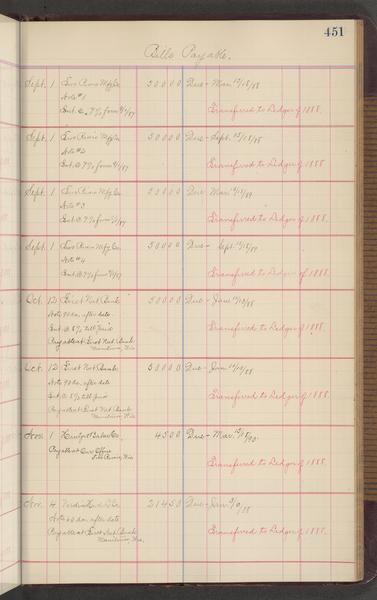 451
Bills Payable.
Sept. 1 Two Rivers Mfg Co. 50000 Due - Mar. 12/15/88
Note #1
Int. @ 7% from 9/1/87 Transferred to Ledger of 1888.
Sept. 1 Two Rivers Mfg Co. 50000 Due - Sept. 12/15/88
Note #2
Int. @ 7% from 9/1/87 Transferred to Ledger of 1888.
Sept. 1 Two Rivers Mfg Co. Due Mar.
Note #3
Int. @ 7% from 9/1/87 Transferred to Ledger of 1888.
Sept. 1 Two Rivers Mfg Co. 50000 Due - Sept.
Note #4
Int. @ 7% from 9/1/87 Transferred to Ledger of 1888.
Oct. 12 First Nat Bank 50000 Due - Jan
Note 90 da. after date
Int @ 8% till paid Transferred to Ledger of 1888.
Payable at First Nat. Bank
Manitowoc, Wis.
Oct. 12 First Nat. Bank 50000 Due - Jan.
Note 90 da. after date
Int @ 8% till paid Transferred to Ledger of 1888.
Payable at First Nat Bank
Manitowoc, Wis.
Nov. 1 4500 Due - Mar.
Payable at Our Office
Two Rivers, Wis Transferred to Ledger of 1888.
Nov. 4 21450 Due - Jan.
Note 60 da. after date
Payable at First Nat. Bank Transferred to Ledger of 1888.
Manitowoc, Wis.